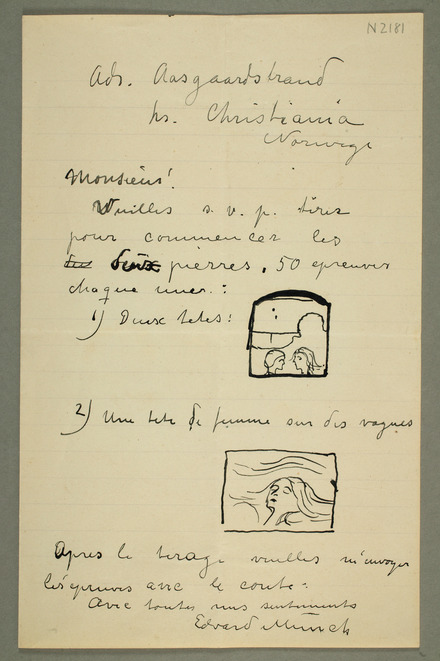 N2181
Ads. Aasgaardstrand
pr. Christiania
Norvege
Monsieur!
Vuilles s. v. p. tirer
pour commencer les
deux pierres, 50 epreuves
chaque une :
1) Deux tetes :
2) Une tete de femme sur des vagues
Apres le tirage vuilles m'envoyer
les epreuves avec le conte :
Avec toutes mes sentiments
Edvard Munch